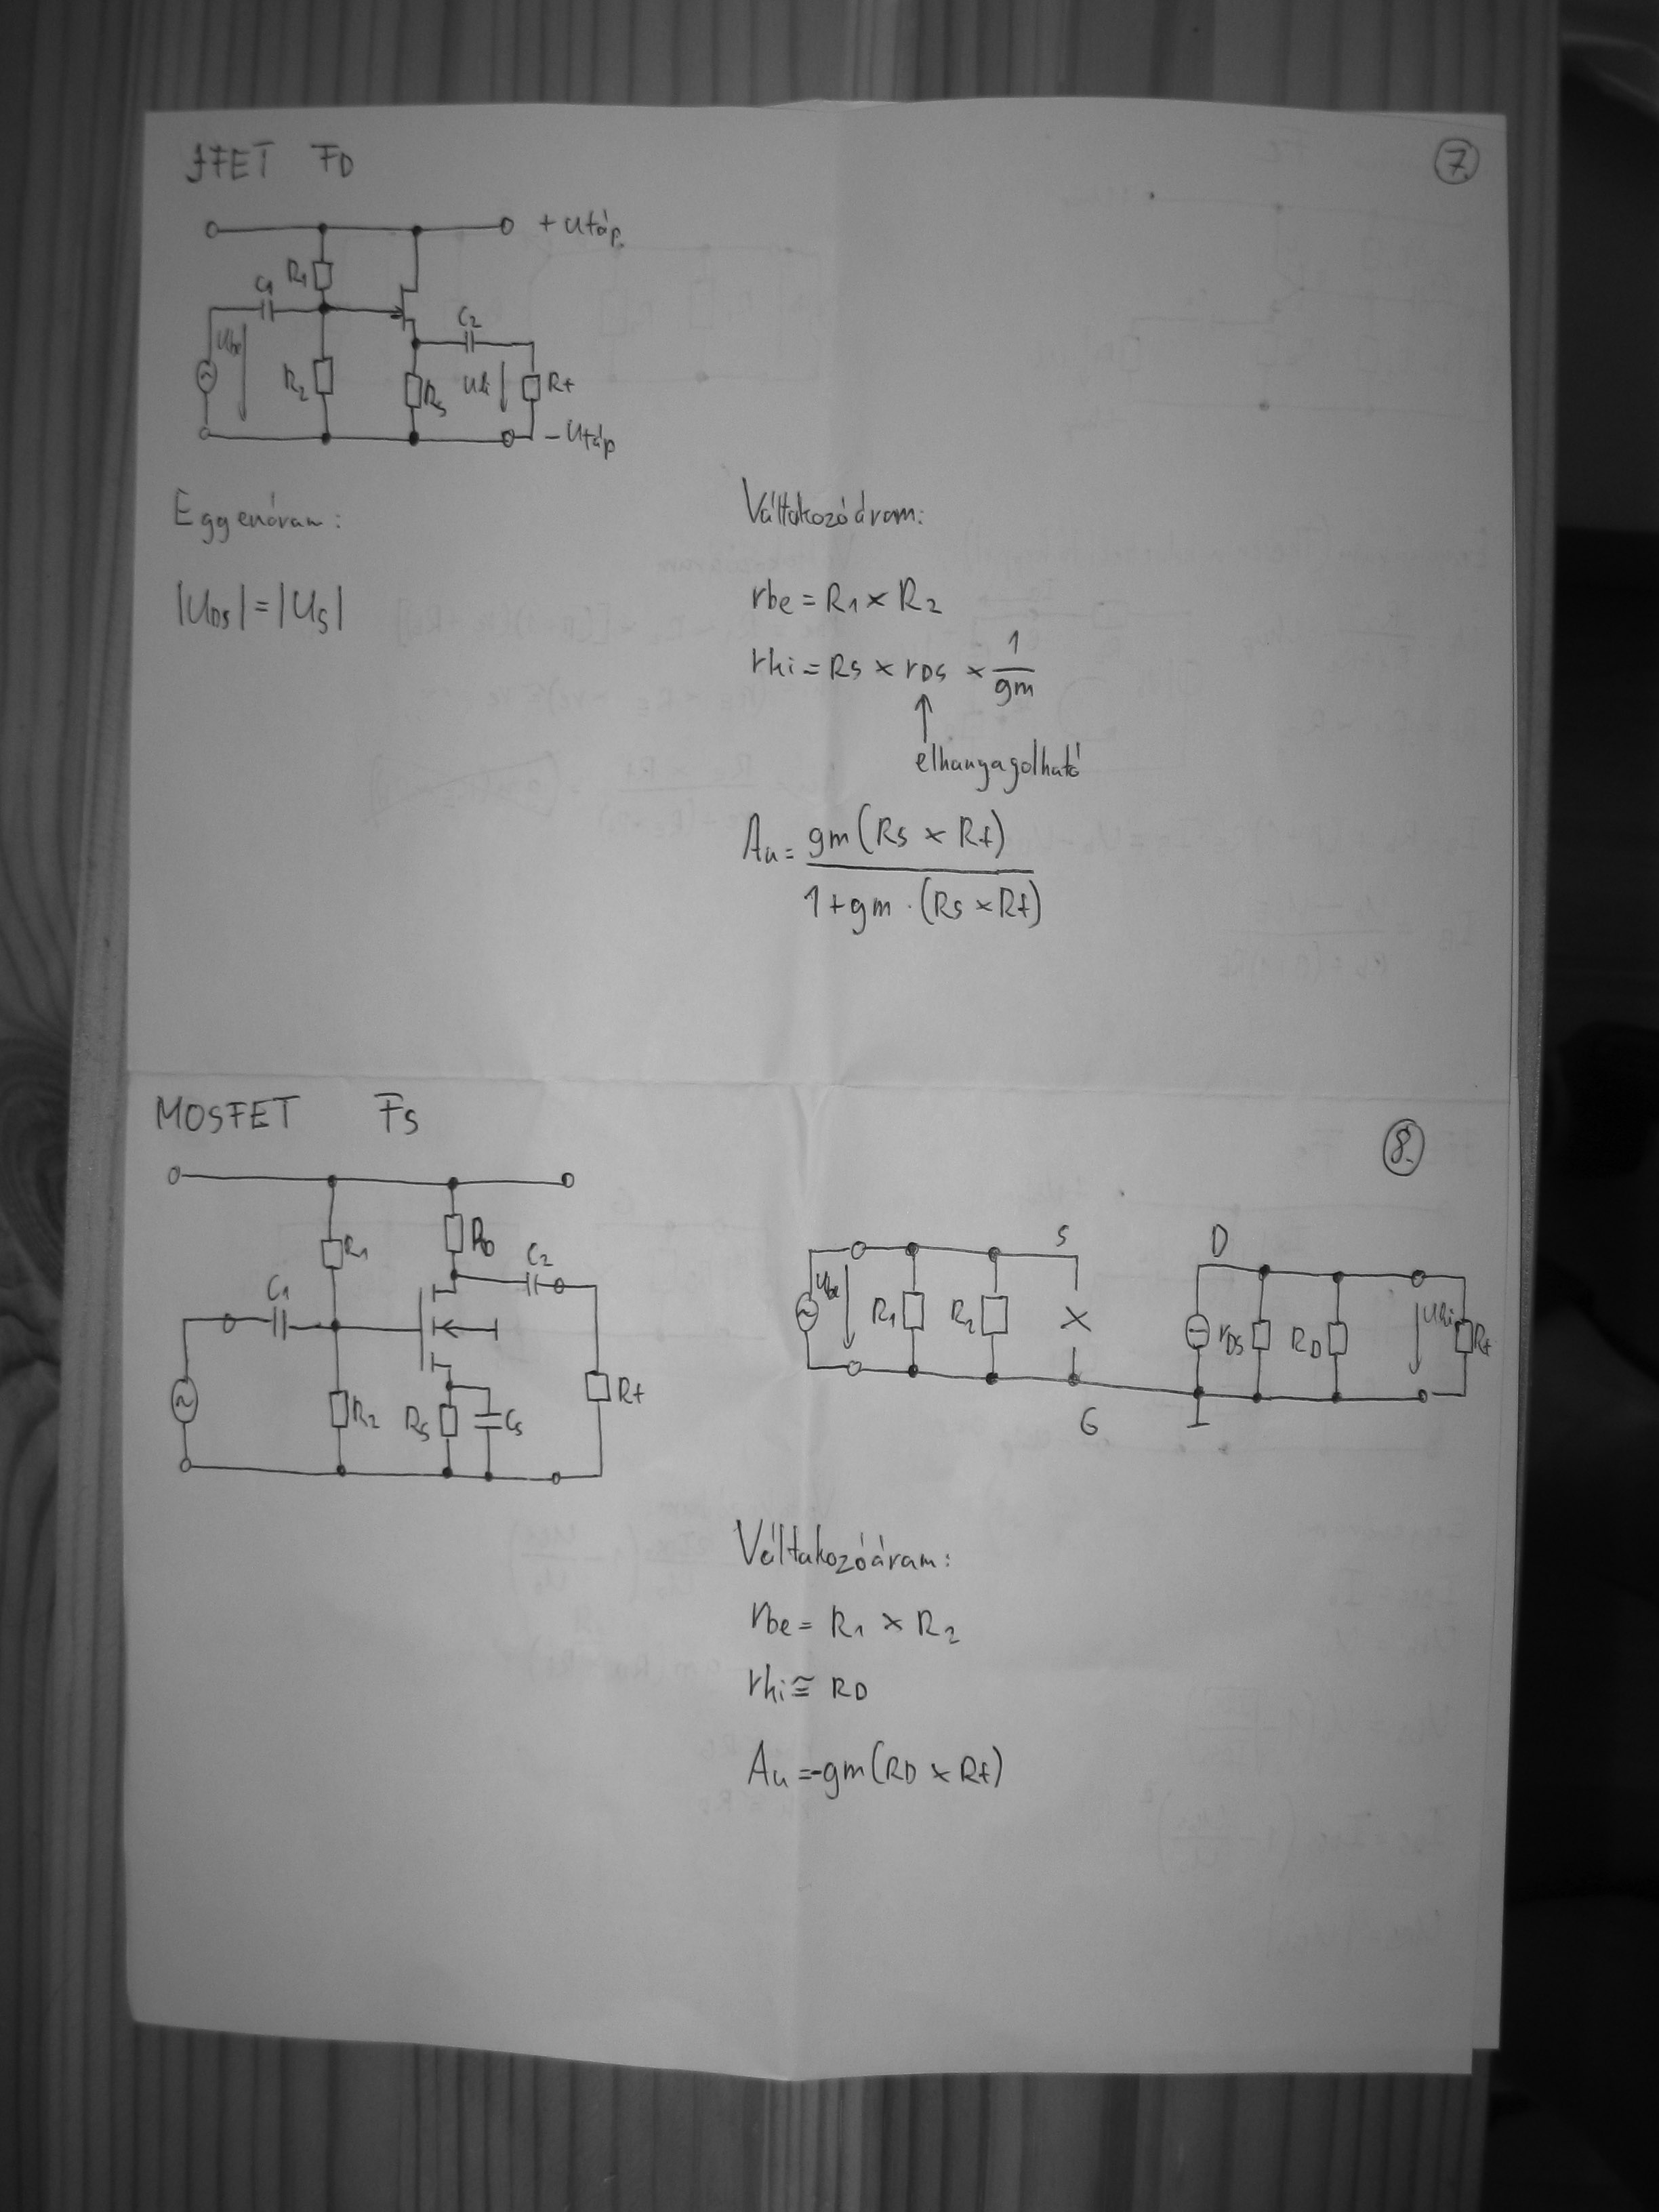 JFET FD
7.
+ Utáp.
R1
C1
C2
Ube
R2
RS
Uki
Rt
- Utáp
Eggenáram:
|UDS| = |US|
Váltakozóáram:
rbe = R1 × R2
rki = RS × rDS × 1/gm
↑
elhanyagolható
Au = gm(RS × Rt) / 1 + gm · (RS × Rt)
MOSFET FS
8.
R1
RD
C2
C1
R2
RS
CS
Rt
S
D
Ube
R1
R2
×
rDS
RD
Uki
Rt
G
Váltakozóáram:
rbe = R1 × R2
rki ≅ RD
Au = -gm(RD × Rt)